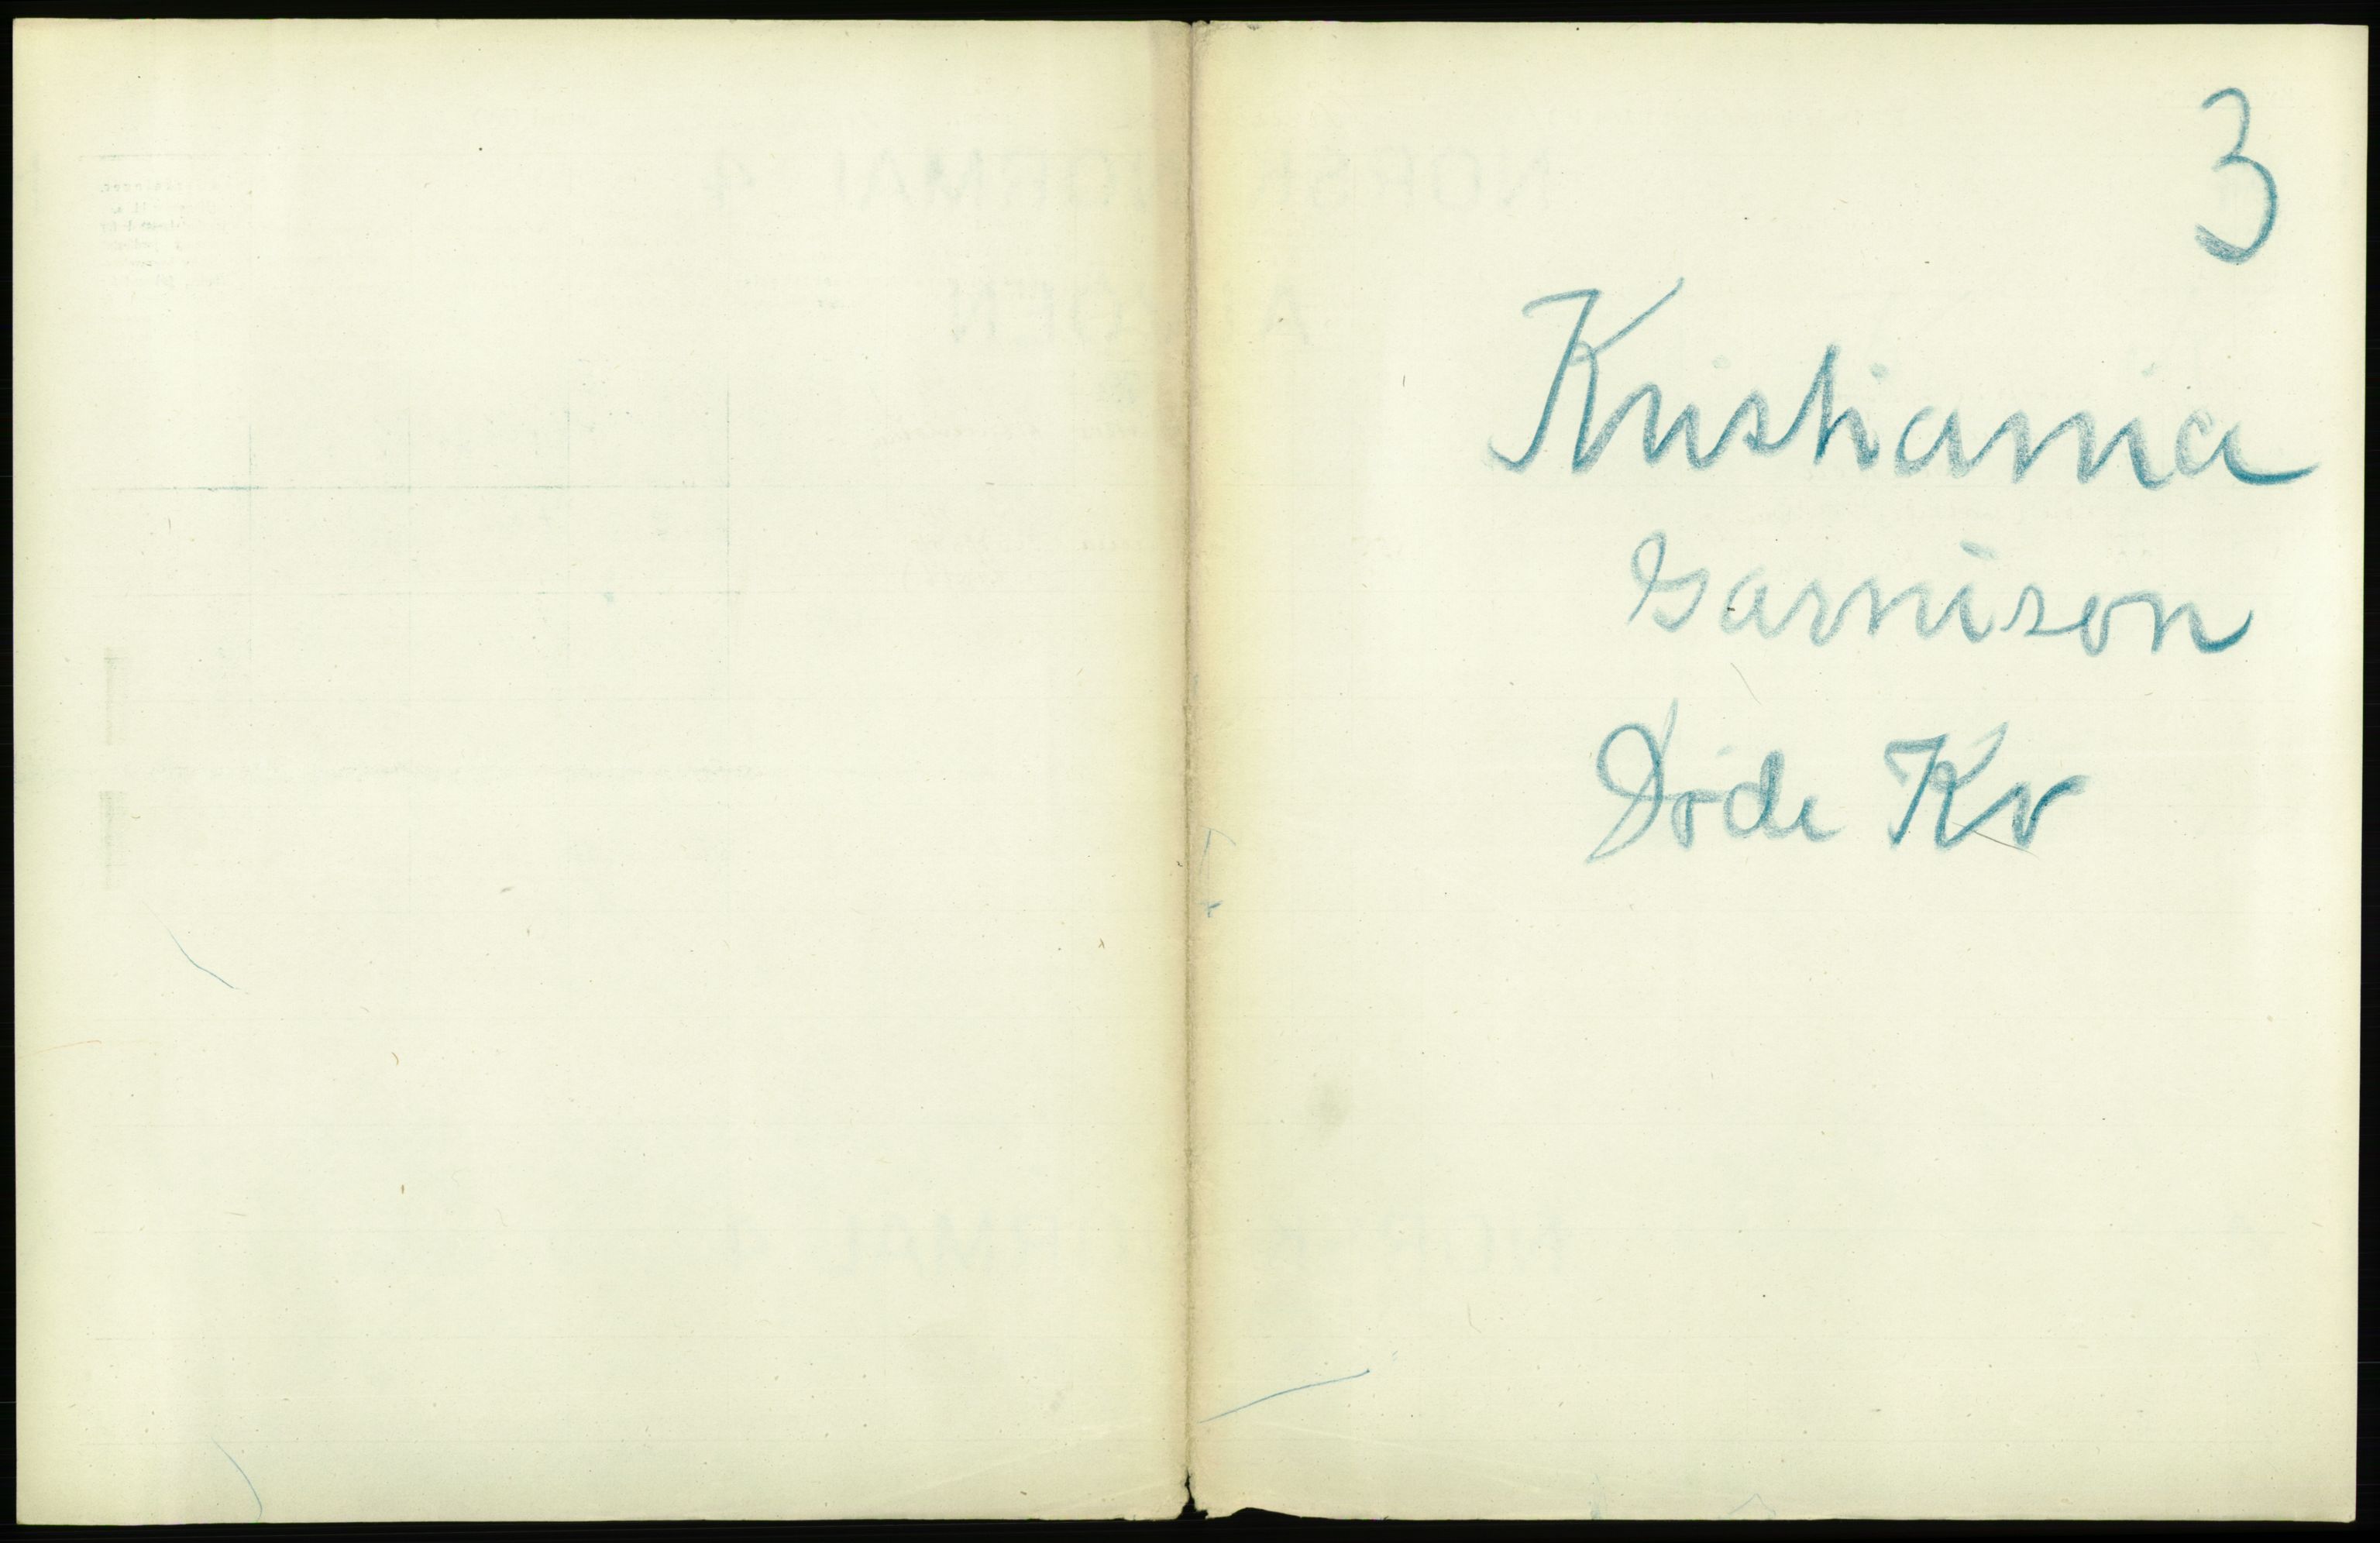 3
Kristiania
Garnison
Døde Kv